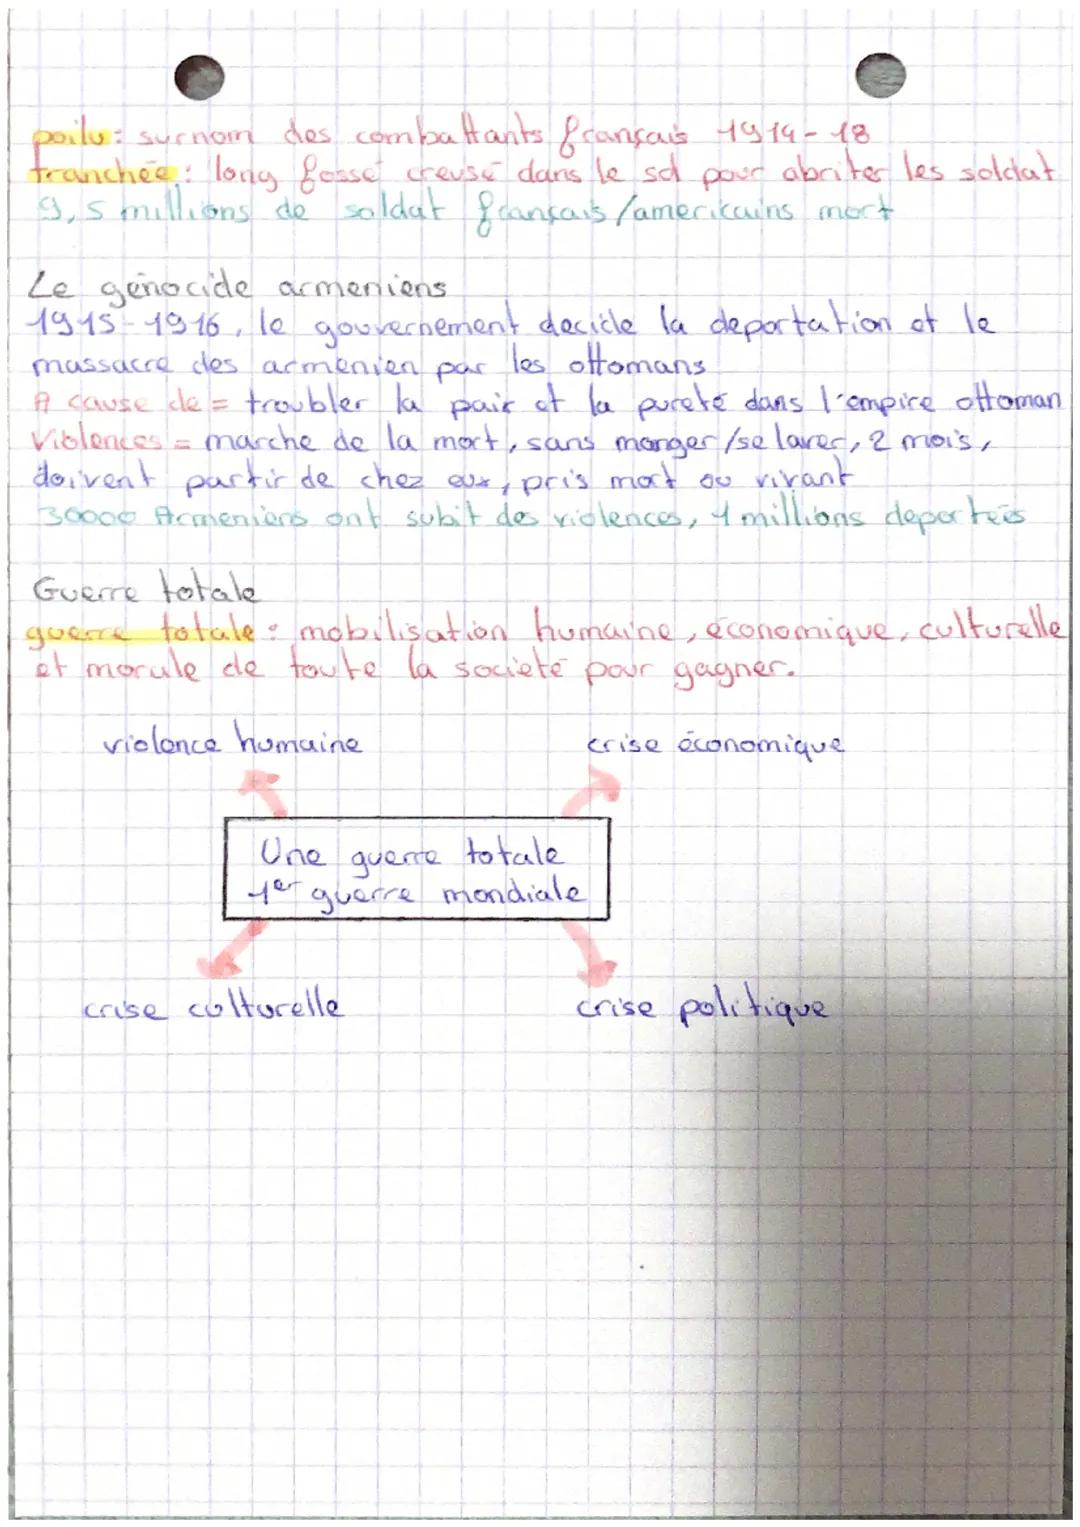 poilu : surnom des combattants français 1914-18
tranchée : long fossé creusé dans le sol pour abriter les soldat
9,5 millions de soldat français/americains mort
Le génocide armeniens
1915-1916, le gouvernement decide la deportation et le
massacre des armenien par les ottomans
A cause de = troubler la paix et la pureté dans l'empire ottoman
Violences = marche de la mort, sans manger/se laver, 2 mois,
doivent partir de chez eux, pris mort ou vivant
30000 Armeniens ont subit des violences, 1 millions deportées
Guerre totale
guerre totale : mobilisation humaine, économique, culturelle
et morale de toute la societé pour gagner.
violence humaine crise économique
Une guerre totale
1er guerre mondiale
crise culturelle crise politique